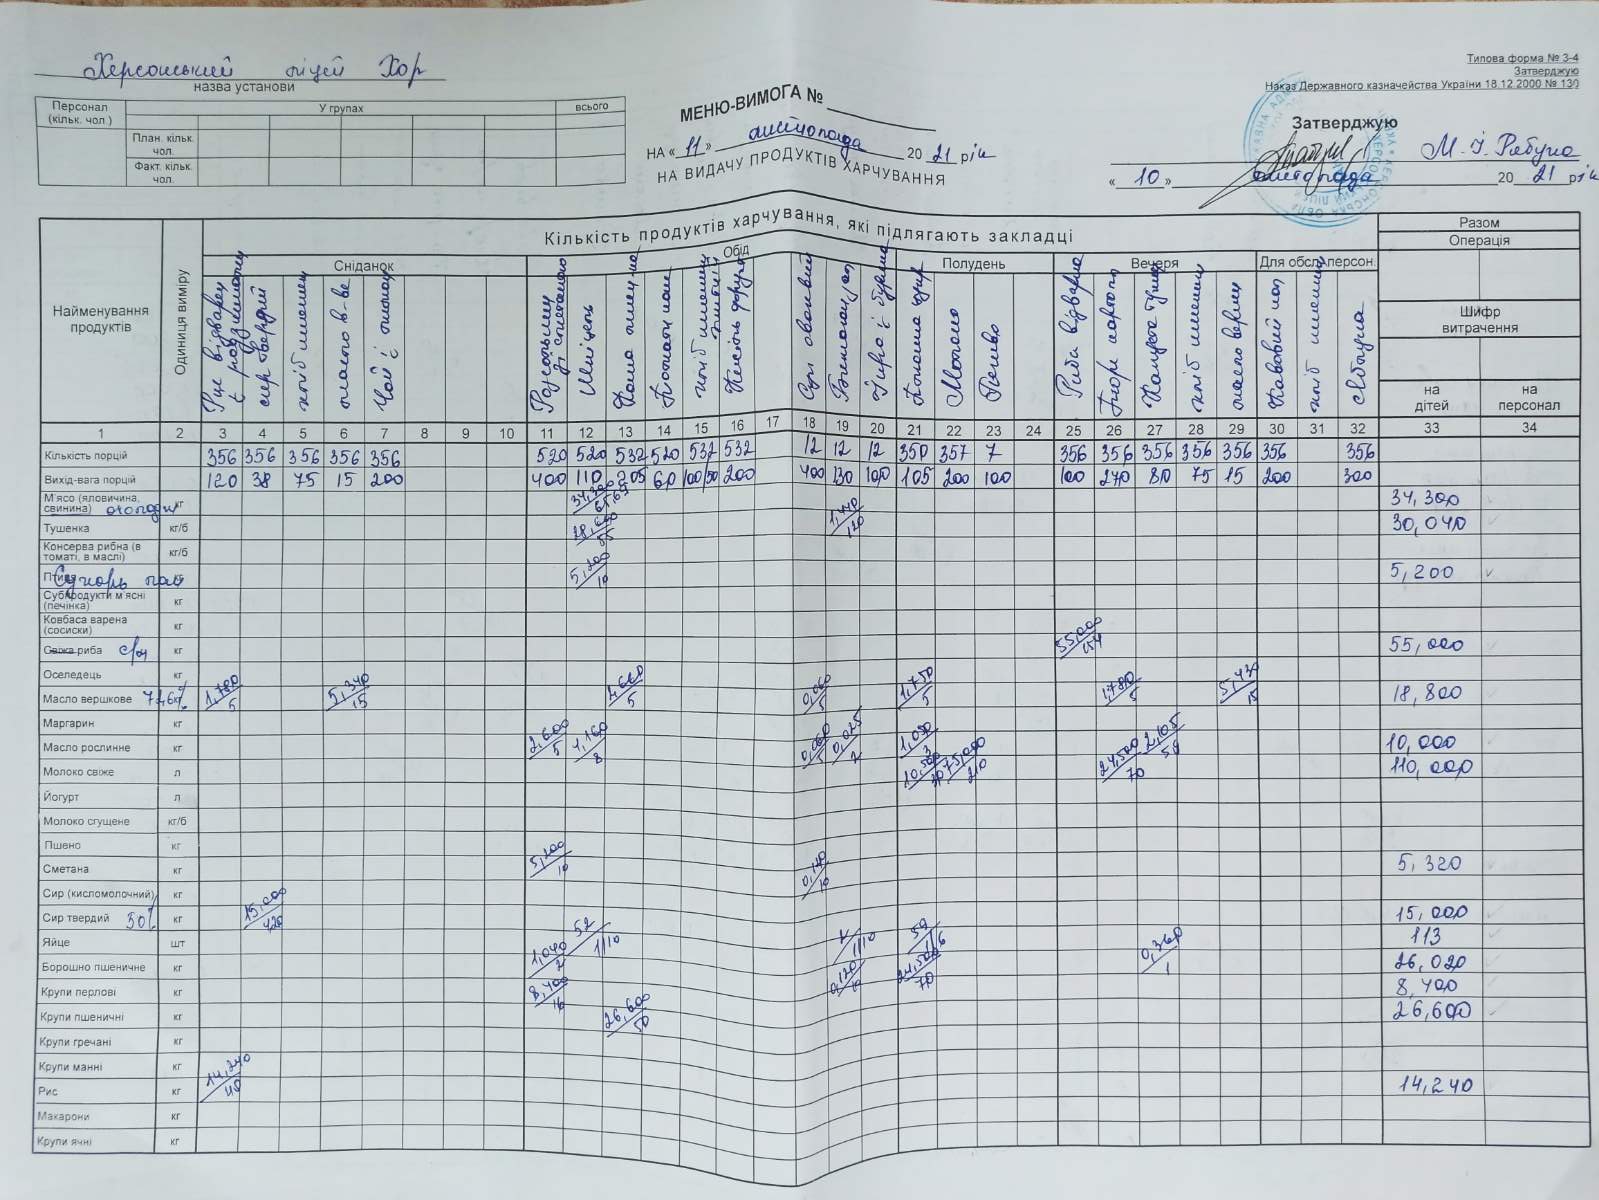 Херсонський ліцей ХОР
назва установи
Типова форма № 3-4
Затверджую
Наказ Державного казначейства України 18.12.2000 № 130
Персонал (кільк. чол.)
У групах
всього
План. кільк. чол.
Факт. кільк. чол.
МЕНЮ-ВИМОГА №
НА « 11 » листопада 20 21 рік
НА ВИДАЧУ ПРОДУКТІВ ХАРЧУВАННЯ
Затверджую
М. І. Рябуха
« 10 » листопада 20 21 рік
Найменування продуктів
Одиниця виміру
Кількість продуктів харчування, які підлягають закладці
Разом
Операція
Сніданок
Обід
Полудень
Вечеря
Для обсл. персон.
Шифр витрачення
на дітей
на персонал
Рис відварен з родзинками
сир твердий
хліб пшенич
масло в-ве
Чай з лимон
Розсольник зі сметаною
Шніцель
Каша пшенична
хліб пшенич житній
Кисіль фрукт
Суп овочевий
Молоко
Печиво
Риба відварна
Пюре картопл
Капуста туш
хліб пшенич
масло верш
Кавовий нап
хліб пшенич
Яблука
1 2 3 4 5 6 7 8 9 10 11 12 13 14 15 16 17 18 19 20 21 22 23 24 25 26 27 28 29 30 31 32 33 34
Кількість порцій 356 356 356 356 356 520 520 532 520 532 532 12 12 12 350 357 7 356 356 356 356 356 356 356
Вихід-вага порцій 120 38 75 15 200 400 110 205 60 100/50 200 400 130 100 105 200 100 100 270 80 75 15 200 300
М'ясо (яловичина, свинина) кг 34,300 34,300
Тушенка кг/б 1,440/120 30,040
Консерва рибна (в томаті, в маслі) кг/б
Птиця кг 5,200/10 5,200
Субпродукти м'ясні (печінка) кг
Ковбаса варена (сосиски) кг
Свіжа риба с/м кг 55,000/154 55,000
Оселедець кг
Масло вершкове кг 1,780/5 5,340/15 2,660/5 0,060/5 1,750/5 1,780/5 5,430/15 18,800
Маргарин кг
Масло рослинне кг 2,600/5 4,160/8 0,060/5 0,025/2 1,050/3 2,105 10,000
Молоко свіже л 10,500/30 75,000/210 24,500/70 110,000
Йогурт л
Молоко сгущене кг/б
Пшено кг
Сметана кг 5,200/10 0,120/10 5,320
Сир (кисломолочний) кг
Сир твердий 50% кг 15,000/420 15,000
Яйце шт 52 1/10 1/10 59 1/6 113
Борошно пшеничне кг 1,040/2 0,120/10 24,500/70 0,360/1 26,020
Крупи перлові кг 8,400/16 8,400
Крупи пшеничні кг 26,600/50 26,600
Крупи гречані кг
Крупи манні кг
Рис кг 14,240/40 14,240
Макарони кг
Крупи ячні кг